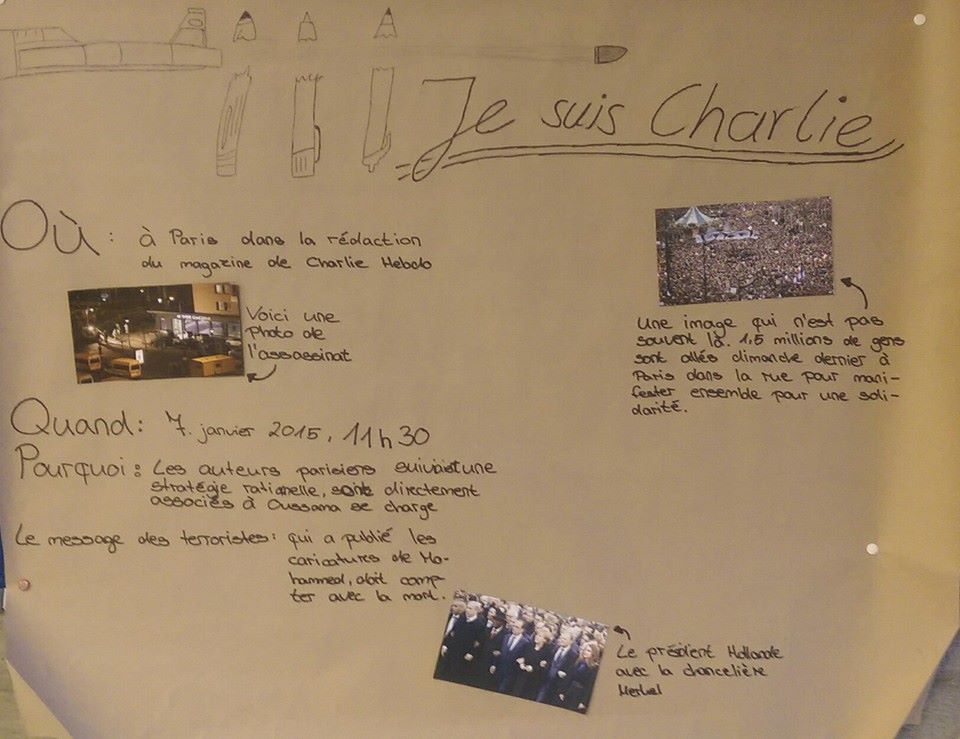 Je suis Charlie
Où : à Paris dans la rédaction
du magazine de Charlie Hebdo
Voici une
Photo de
l'assassinat
Une image qui n'est pas
souvent là. 1,5 millions de gens
sont allés dimanche dernier à
Paris dans la rue pour mani-
fester ensemble pour une soli-
darité.
Quand: 7. janvier 2015, 11h30
Pourquoi: Les auteurs parisiens une
stratégie rationelle, sont directement
associés à Oussama se charge
Le message des terroristes: qui a publié les
caricatures de Mo-
hammed, doit comp-
ter avec la mort.
Le présient Hollande
avec la chancelière
Merkel